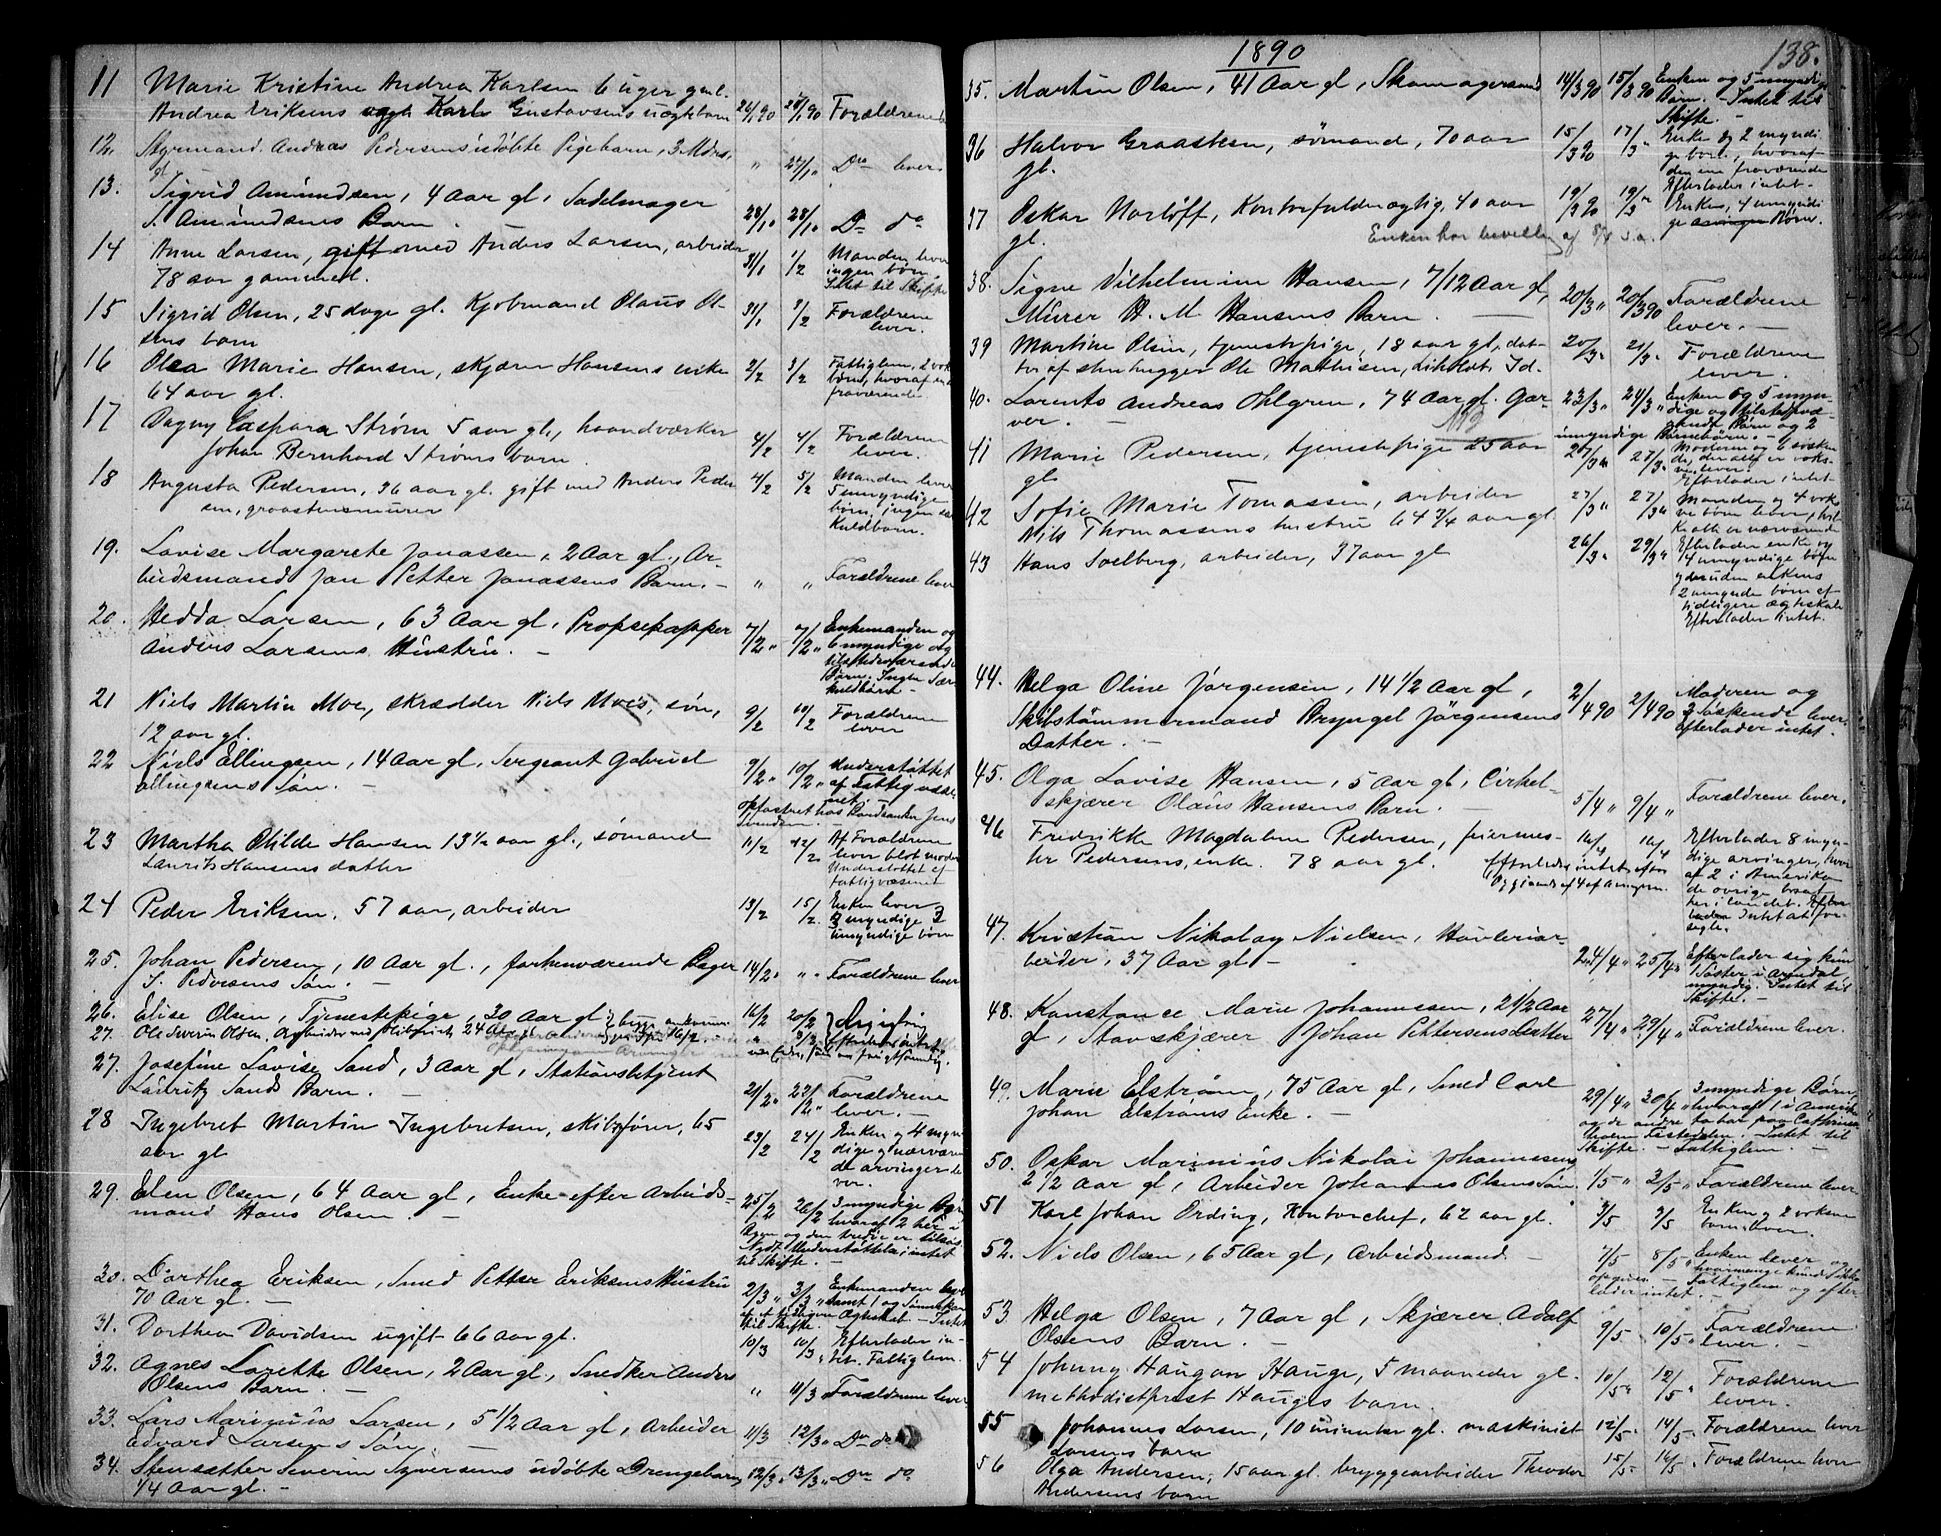 11 Marie Kristine Andrea Karlsen 6 uger gml.
Andrea Eriksens og Karl Gustavsens uægtebarn 26/1 90 28/1 90 Forældrene
12. Styrmand Andreas Pedersens udøbte Pigebarn, 3 Mdr.
gl. " 27/1 " Do lever
13. Sigrid Amundsen, 4 Aar gl, Sadelmager
S. Amundsens Barn. 28/1 " 28/1 " Do do
14 Anne Larsen, gift med Anders Larsen, arbeider
78 aar gammel. 31/1 1/2 Manden lever
ingen børn,
Intet til Skifte
15 Sigrid Olsen, 25 dage gl. Kjøbmand Olaus Ol-
sens barn 31/1 3/2 Forældrene
lever.
16 Olea Marie Hansen, skjærer Hansens enke
64 aar gl. 2/2 3/2 Fattiglem, 2 vok
børn, hvoraf en
fraværende
17 Dagny Caspara Strøm 5 aar gl, haandværker
Johan Bernhard Strøms barn. 4/2 4/2 Forældrene
lever.
18 Augusta Pedersen, 36 aar gl. gift med Anders Peder
sen, graastensmurer 4/2 5/2 Manden lever
5 umyndige
børn, ingen sær
kuldbarn.
19. Lovise Margarete Jonassen, 2 Aar gl., Ar-
beidsmand Jan Petter Jonassens Barn. - " " Forældrene lever
20. Hedda Larsen, 63 Aar gl, Propsekapper
Anders Larsens Hustru. - 7/2 " 7/2 " Enkemanden og
6 myndige og
tilstedeværende
Børn. Ingen Sær
kuldbørn -
21 Niels Martin Moe, skrædder Niels Moes, søn,
12 aar gl. 9/2 10/2 Forældrene
lever
22 Niels Ellingsen, 14 Aar gl, Sergeant Gabriel
Ellingsens Søn. - 9/2 " 10/2 " Understøttet
af Fattigvæse
net
opfostret hos Jens
Svendsen
23 Martha Otilde Hansen 13 1/2 aar gl., sømand
Laurits Hansens datter 11/2 12/2 Af Forældrene
lever blot moder
Understøttet af
fattigvæsenet
24 Peder Eriksen. 57 aar, arbeider 13/2 15/2 Enken lever
3 myndige 3
umyndige børn
25. Johan Pedersen, 10 Aar gl., forhenværende Bager
S. Pedersens Søn. - 14/2 " " " Forældrene lever
26. Elise Olsen, Tjenestepige, 30 Aar gl 16/2 20/2
27. Ole Severin Olsen, Arbeider 24 Aar gl Efterlader intet
27. Josefine Lovise Sand, 3 Aar gl, Stationsbetjent
Lauritz Sands Barn. - 21/2 " 22/2 " Forældrene
lever. -
28 Ingebret Martin Ingebretsen, skibsfører, 65
aar gl 23/2 24/2 Enken og 4 myn
dige nærværen
de arvinger le
ver.
29. Elen Olsen, 64 Aar gl, Enke efter Arbeids-
mand Hans Olsen. - 25/2 26/2 3 myndige Børn
hvoraf 2 her i
Byen og den tredie er tilsøs
Nydt Understøttelse; intet
til Skifte. -
30. Dorthea Eriksen, Smed Petter Eriksens Hustru
70 Aar gl. - 2/3 " 3/3 " Enkemanden lever
samt 1
af et tidligere Ægteskab - Intet
til Skifte. -
31. Dorthea Davidsen ugift 66 aar gl. 10/3 10/3 " Efterlader in-
tet. Fattiglem.
32. Agnes Lorette Olsen, 2 Aar gl, Snedker Anders
Olsens Barn. - " 11/3 Forældrene lever
33. Lars Marinius Larsen, 5 1/2 Aar gl, Arbeider
Edvard Larsens Søn. - 11/3 12/3 " Do do
34. Stensætter Severin Syversens udøbte Drengebarn,
1/4 Aar gl. - 12/3 " 13/3 " Do do
1890
138.
35. Martin Olsen, 41 Aar gl, Skomagersvend 14/3 90 15/3 90 Enken og 5 umyndige
Børn. - Intet til
Skifte. -
36 Halvor Graasten, sømand, 70 aar
gl. 15/3 90 17/3 " Enke og 2 myndi
ge børn, hvoraf
den ene fraværende
Efterlader intet.
37 Oskar Norløff, Kontorfuldmægtig, 40 aar
gl. 19/3 90 19/3 " Enken, 4 umyndi
ge Børn.
Enken har bevilling af 8/4 s.a.
38. Signe Vilhelmine Hansen, 7/12 Aar gl,
Murer H. M. Hansens Barn. - 20/3 " 20/3 90 Forældrene
lever. -
39 Martine Olsen, tjenestepige, 18 aar gl, dat-
ter af stenhugger Ole Mathisen, Id. 20/3 " 21/3 " Forældrene
lever.
40. Lorents Andreas Ohlgren, 74 Aar gl. Gar-
ver. - 23/3 " 24/3 " Enken og 5 myn-
dige og tilstedevæ-
rende Børn og 2
umyndige Børnebørn. -
NB
41 Marie Pedersen, tjenestepige 25 aar
gl 27/3 " 27/3 " Moderen og 6 søsken
de, der alle er voks-
ne, lever.
Efterlader intet.
42 Sofie Marie Tomassen, arbeider
Nils Thomassens hustru 64 3/4 aar gl. 27/3 " 27/3 " Manden og 4 voks
ne børn lever, hvil
ke alle er nærværende
43 Hans Solberg, arbeider, 37 aar gl 26/3 " 29/3 " Efterlader enke og
4 umyndige børn
desuden enkens
2 umynde børn af
tidligere ægteskab
Efterlader intet.
44. Helga Oline Jørgensen, 14 1/2 Aar gl,
Skibstømmermand Bryngel Jørgensens
Datter. - 2/4 90 2/4 90 Moderen og
3 Søskende lever.
Efterlader intet.
45. Olga Lovise Hansen, 5 Aar gl, Cirkel-
skjærer Olaus Hansens Barn. - 5/4 " 9/4 " Forældrene lever.
46 Fredrikke Magdalene Pedersen, feiermes-
ter Pedersens, enke. 78 aar gl. 16/4 16/4 Efterlader 8 myn-
dige arvinger, hvor
af 2 i Amerika
de øvrige bosat
her i landet.
47. Kristian Nikolay Nielsen, Høvleriar-
beider, 37 Aar gl - 24/4 " 25/4 " Efterlader sig kun
1 Søster i Arendal,
myndig. Intet til
Skifte. -
48. Konstance Marie Johannessen, 2 1/2 Aar
gl, Stavskjærer Johan Pettersens datter 27/4 " 29/4 " Forældrene lever.
49. Marie Elstrøm, 75 Aar gl, Smed Carl
Johan Elstrøms Enke. - 29/4 " 30/4 " 3 myndige Børn,
hvoraf 1 i Amerika
og de andre to bor paa Cathrine
holm Tistedalen. Intet til
Skifte. - Fattiglem. -
50. Oskar Marinius Nikolai Johannessens
2 1/2 Aar gl, Arbeider Johannes Olsens Søn. 1/5 " 2/5 " Forældrene lever
51 Karl Johan Ording, Kontorchef, 62 aar gl. 3/5 3/5 Enken og 2 voksne
børn lever.
52. Niels Olsen, 65 Aar gl, Arbeidsmand. - 7/5 8/5 " Enken lever og
hvormange kund ikke
opgives. - Fattiglem og efter
lader intet. -
53 Helga Olsen, 7 Aar gl, Skjærer Adolf
Olsens Barn. - 9/5 " 10/5 " Forældrene
lever. -
54 Johnny Haugan Hauge, 5 maaneder gl.
methodistprest Hauges barn. 10/5 " 12/5 " Forældrene
lever.
55 Johannes Larsen, 10 minuter gl. maskinist
Larsens barn 12/5 " 14/5 " Forældrene lever
56 Olga Andersen, 15 aar gl. bryggearbeider Theodor
Andersens barn 15/5 " 16/5 " Forældrene lever